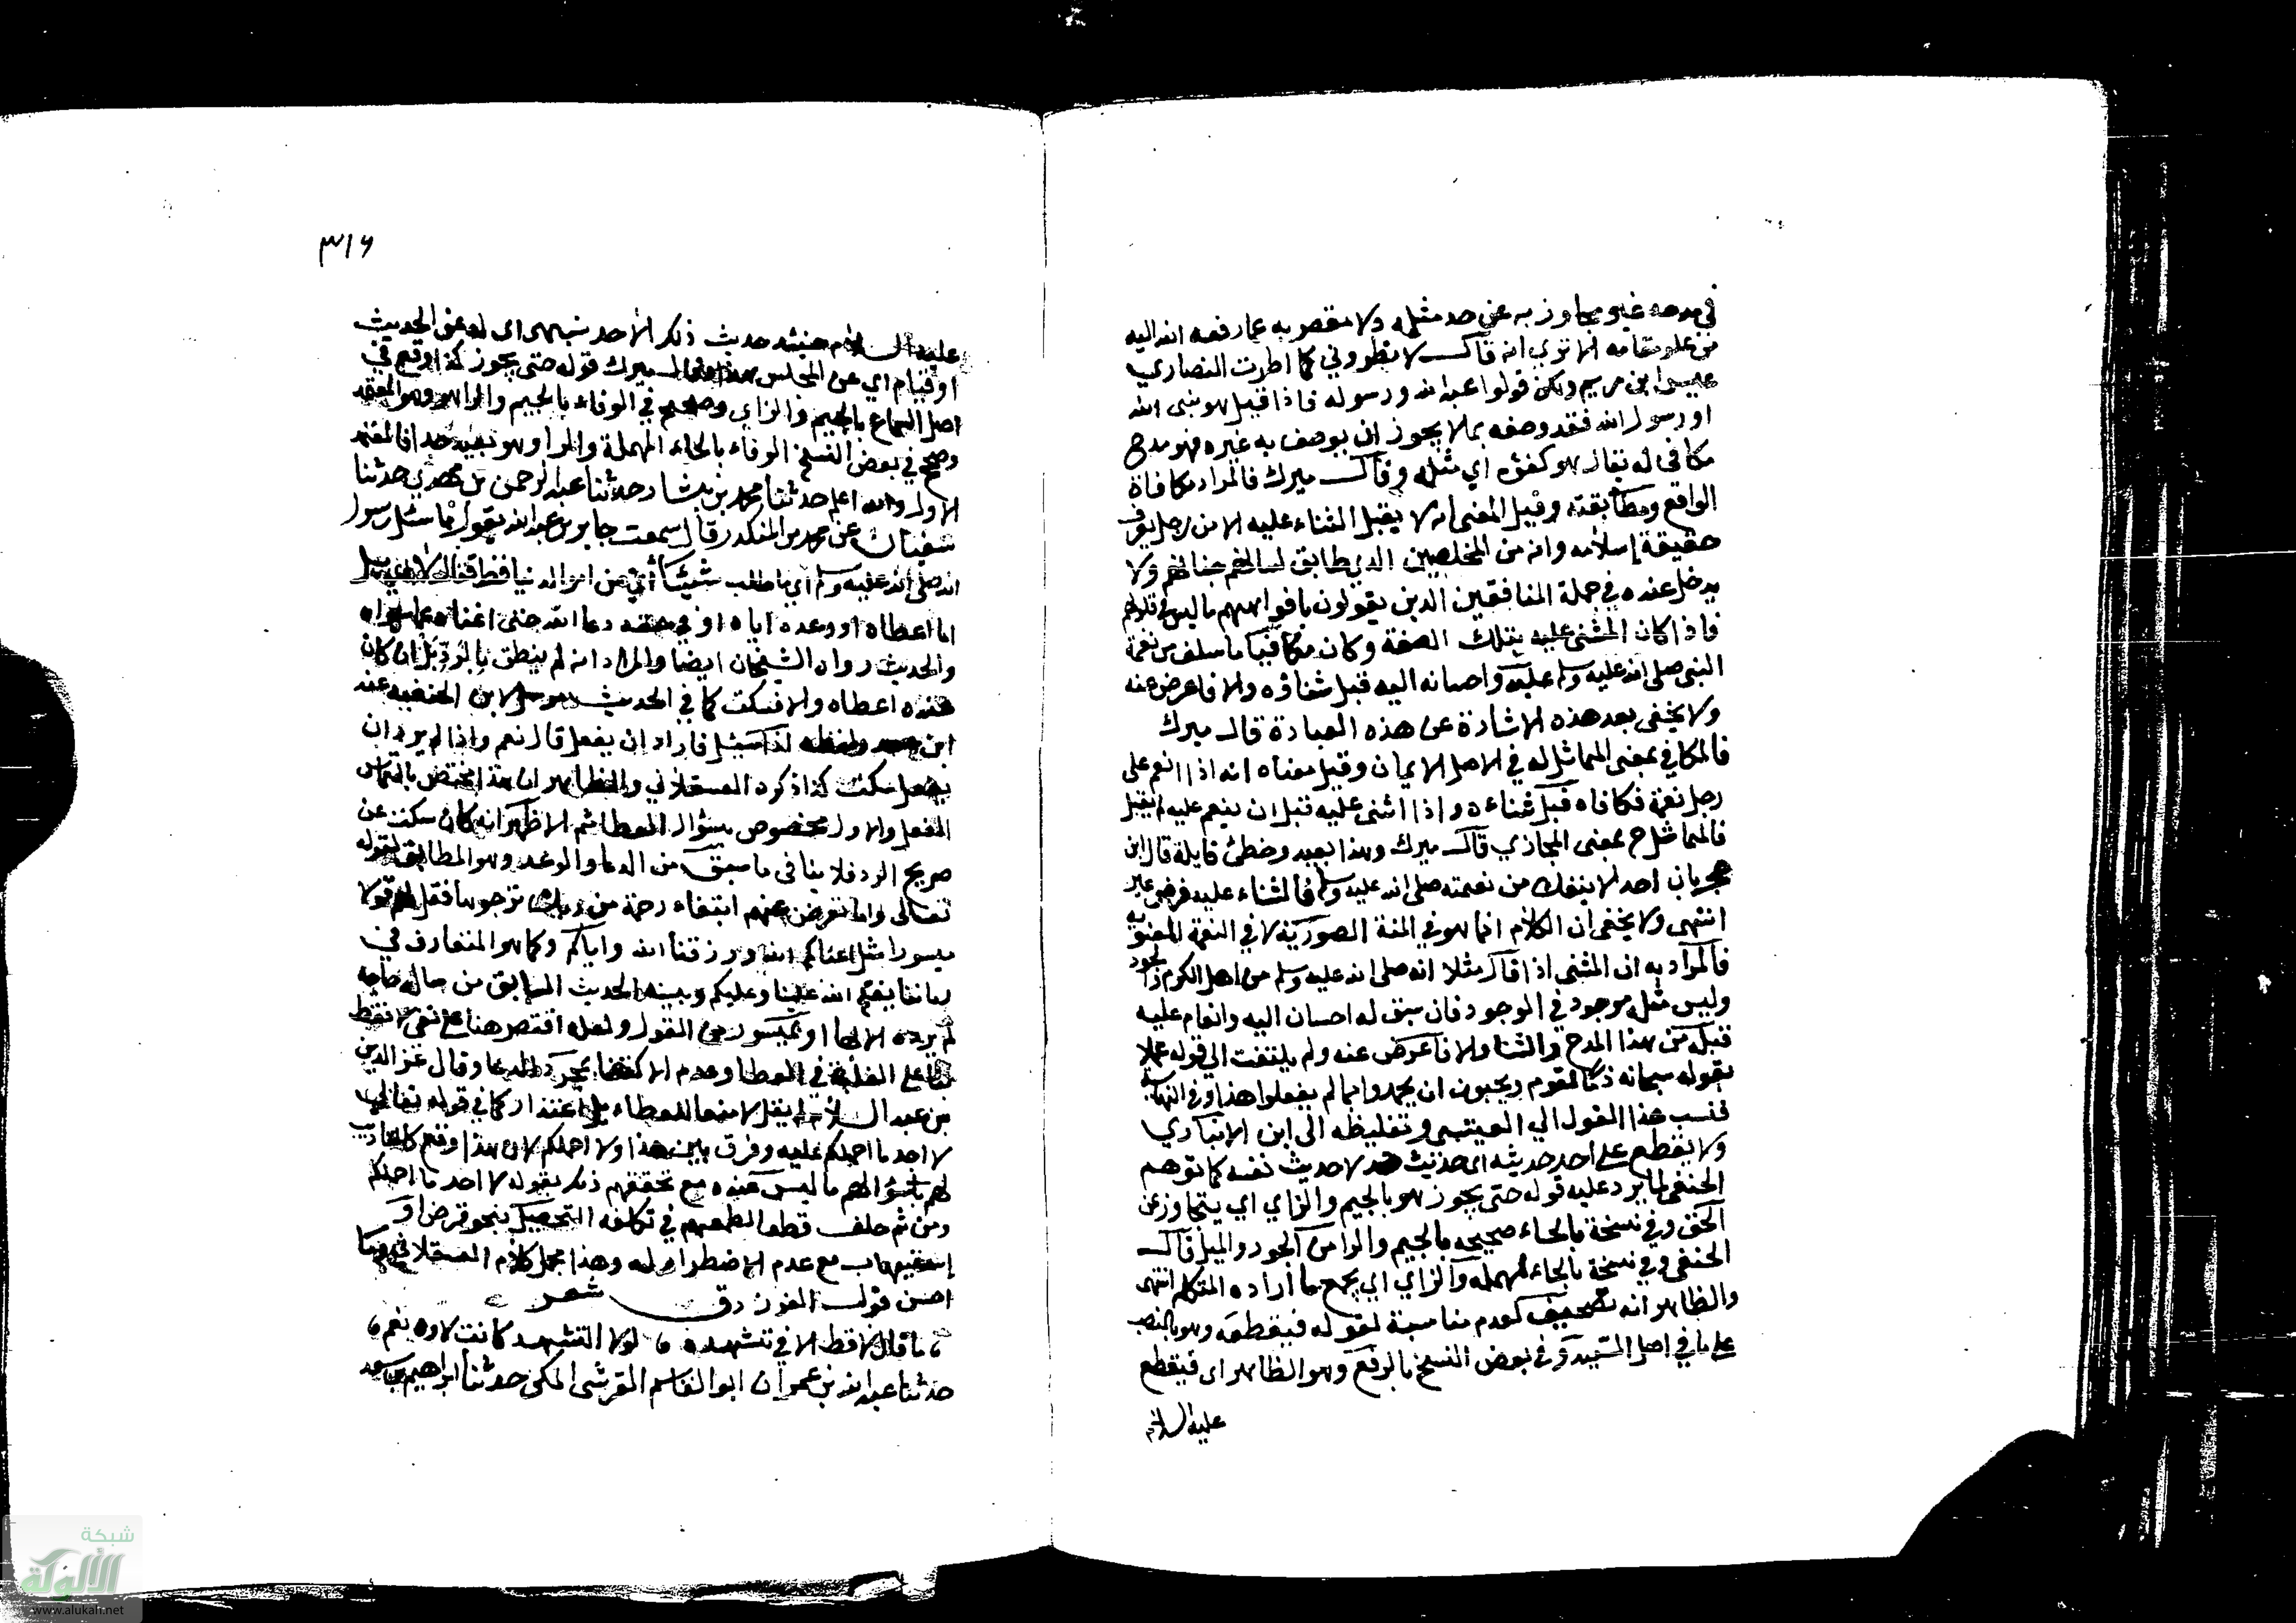 في مدحه غير مجاوز به عن حد مثله ولا مقصر به عما رفعه الله اليه
من علو مقامه الا تري انه قال لا تطروني كما اطرت النصاري
عيسى ابن مريم ولكن قولوا عبد الله ورسوله فاذا قيل هو نبى الله
او رسول الله فقد وصفه بما لا يجوز ان يوصف به غيره فهو مدح
مكافى له يقال هو كفؤه اي مثله وقال ميرك فالمراد مكافاة
الواقع ومطابقته وقيل المعنى انه لا يقبل الثناء عليه الا من رجل يعرف
حقيقة إسلامه وانه من المخلصين الذي طابق لسانهم جنانهم ولا
يدخل عنده في جملة المنافقين الذين يقولون بافواههم ما ليس في قلوبهم
فاذا كان المثنى عليه بتلك الصفة وكان مكافيا ما سلف من نعمة
النبى صلى الله عليه وسلم عليه واحسانه اليه قبل ثناؤه والا فاعرض عنه
ولا يخفى بعد هذه الاشارة عن هذه العبارة قال ميرك
فالمكافي بمعنى المماثل له في الاصل الايمان وقيل معناه انه اذا انعم على
رجل نعمة فكافاه قبل ثناءه واذا اثنى عليه قبل ان ينعم عليه لم يقبل
فالمماثل ح بمعنى المجازي قال ميرك وهذا بعيد وخطئ قايله قال ابن
حجر بان احد لا ينفك من نعمته صلى الله عليه وسلم فالثناء عليه فرض عين
انتهى ولا يخفى ان الكلام انما هو في المنة الصورية لا في النعمة المعنوية
فالمراد به ان المثنى اذا قال مثلا انه صلى الله عليه وسلم من اهل الكرم والجود
وليس مثله موجود في الوجود فان سبق له احسان اليه وانعام عليه
قبل من هذا المدح والثنا والا فاعرض عنه ولم يلتفت الي قوله عملا
بقوله سبحانه ذما لقوم ويحبون ان يحمدوا بما لم يفعلوا هذا وفي النهاية
فنسب هذا القول الي القيتبى وتغليظه الى ابن الانباري
ولا يقطع على احد حديثه اى حديث احد لا حديث نفسه كما توهم
الحنفي لما يرد عليه قوله حتى يجوز هو بالجيم والزاي اي يتجاوز عن
الحق وفي نسخة بالحاء صحيحه بالجيم والرا من الجور والميل قال
الحنفي وفي نسخة بالحاء المهملة والزاي اي يجمع ما أراده المتكلم انتهى
والظاهر انه تصحيف لعدم مناسبة لقوله فيقطعه وهو بالنصب
على ما في اصل السيد وفي بعض النسخ بالرفع وهو الظاهر اى فيقطع
عليه السلام
٣١٦
عليه السلام حينئذ حديث ذلك الاحد بنهى اى له عن الحديث
او قيام اي عن المجلس هذا وقال ميرك قوله حتى يجوز كذا وقع في
اصل السماع بالجيم والزاي وصحح في الوفاء بالجيم والراء وهو المعتمد
وصحح في بعض النسخ الوفاء بالحاء المهملة والراء وهو بعيد جدا فالمعتمد
الاول والله اعلم حدثنا محمد بن بشار حدثنا عبد الرحمن بن مهدي حدثنا
سفيان عن محمد بن المنكدر قال سمعت جابر بن عبد الله يقول ما سئل رسول
الله صلى الله عليه وسلم اي ما طلب شيئا أي من امر الدنيا قط فقال لا بل
اما اعطاه او وعده اياه او في حقه دعا الله حتى اغناه عما سواه
والحديث رواه الشيخان ايضا والمراد انه لم ينطق بالرد بل ان كان
عنده اعطاه والا فسكت كما في الحديث مرسل لابن الحنفيه عند
ابن سعد ولفظه اذا سئل فاراد ان يفعل قال نعم واذا لم يرد ان
يفعل سكت كذا ذكره العسقلاني والظاهر ان هذا مختص بالتماس
الفعل والاول مخصوص بسؤال العطا ثم الاظهر انه كان سكت عن
صريح الرد فلا ينا فى ما سبق من الدعا والوعد وهو المطابق لقوله
تعالى واما تعرض عنهم ابتغاء رحمة من ربك ترجوها فقل لهم قولا
ميسورا مثل اغناكم الله ورزقنا الله واياكم وكما هو المتعارف في
زماننا يفتح الله علينا وعليكم ويبينه الحديث السابق من ساله حاجه
لم يرده الا بها او بميسور من القول ولعله اقتصر هنا على نفى لا فقط
بناء على الغلبة في العطا وعدم الاكتفاء بمجرد الدعا وقال عز الدين
بن عبد السلام لم يقل لا منعا للعطاء بل اعتذارا كما في قوله تعالى
لا اجد ما احملكم عليه وفرق بين هذا ولا احملكم لان هذا وقع
لهم بسؤالهم ما ليس عنده مع تحققهم ذلك بقوله لا اجد ما احملكم
ومن ثم حلف قطعا لطمعهم في تكلفه التحصيل بنحو قرض او
استيهاب مع عدم الاضطرار له وهذا مجمل كلام العسقلاني وما
احسن قول الفرزدق شعر
ما قال لا قط الا في تشهده لولا التشهد كانت لاؤه نعم
حدثنا عبد الله بن عمران ابو القاسم القرشى المكى حدثنا ابراهيم بن سعد
شبكة
الألوكة
www.alukah.net